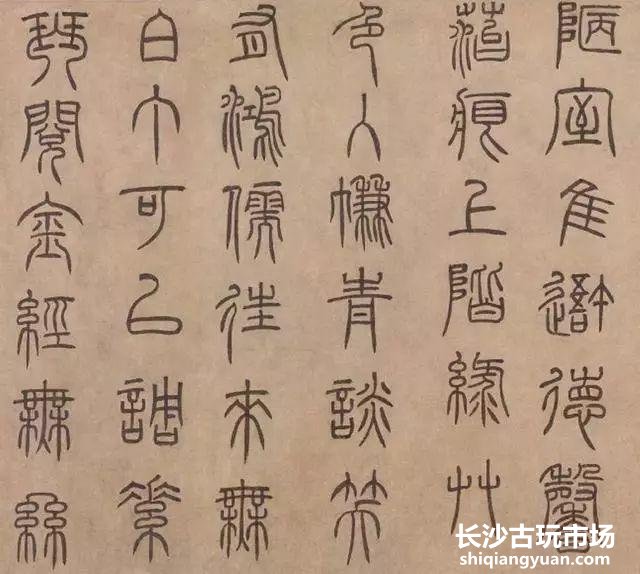 陋室隹吾德馨
菭痕上階綠艸
色入㡘青談笑
有鴻儒往來無
白丁可以調素
琴閱金經無絲
长沙古玩市场
shiqiangyuan.com